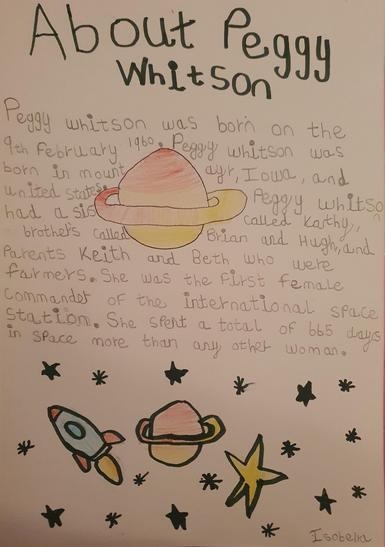 About Peggy
Whitson
Peggy whitson was born on the
9th february 1960. Peggy whitson was
born in mount ayr, Iowa, and
united states. Peggy whitso
had a sis called Kathy,
brother's called Brian and Hugh, and
Parents Keith and Beth who were
farmers. She was the first female
Commander of the international space
Station. She spent a total of 665 days
in space more than any other woman.
Isobella